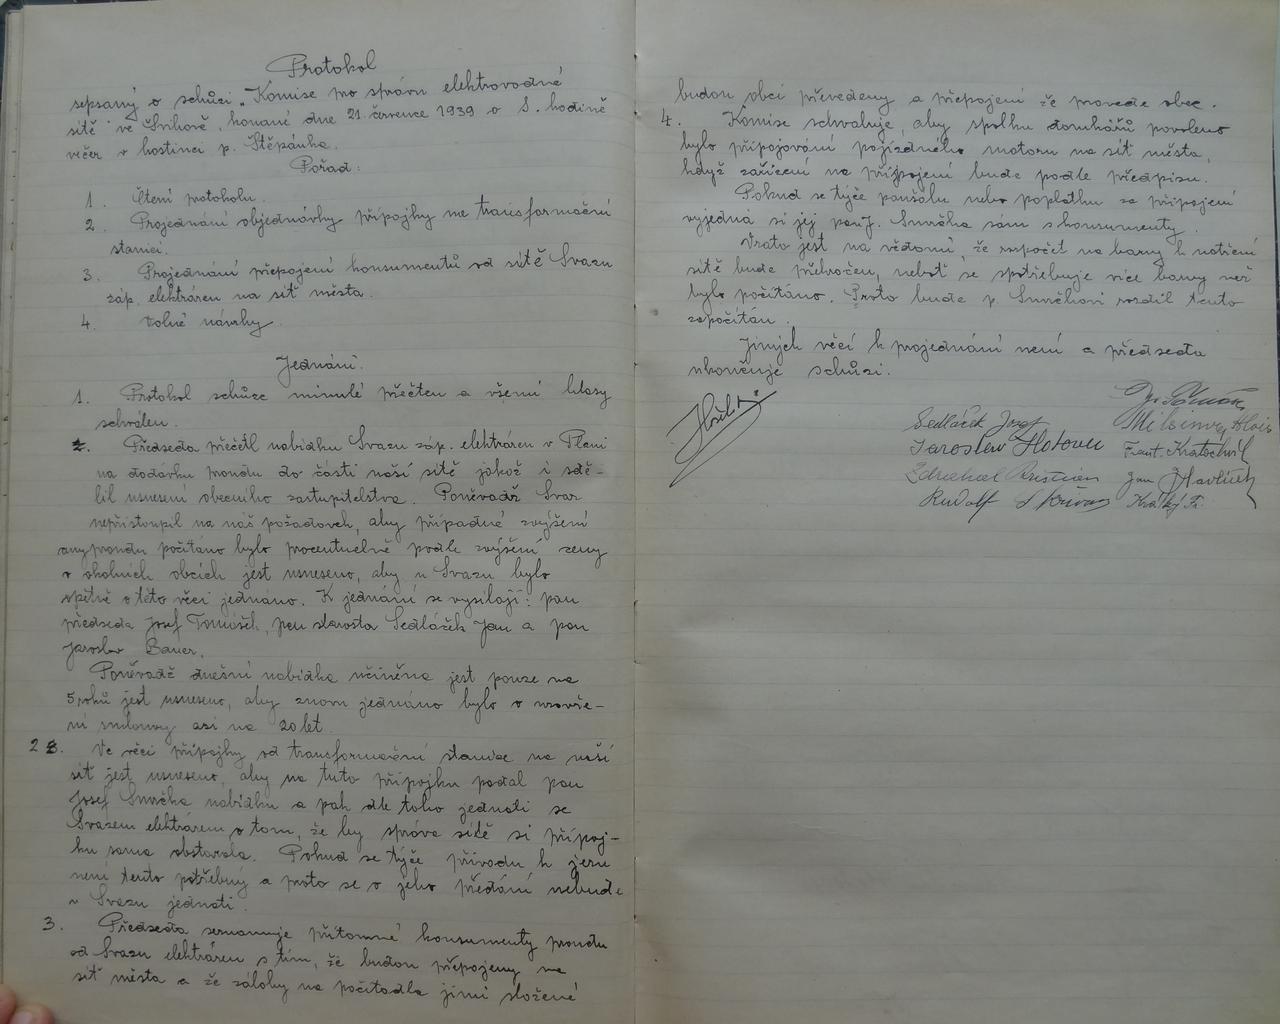 Protokol
sepsaný o schůzi „Komise pro správu elektrovodné
sítě ve Švihově, konané dne 21. července 1939 o 8. hodině
večer v hostinci p. Štěpánka.
Pořad:
1. Čtení protokolu.
2. Projednání objednávky přípojky na transformační
stanici.
3. Projednání přepojení konsumentů od sítě Svazu
záp. elektráren na síť města.
4. Volné návrhy.
Jednání.
1. Protokol schůze minulé přečten a všemi hlasy
schválen.
2. Předseda přečetl nabídku Svazu záp. elektráren v Plzni
na dodávku proudu do části naší sítě jakož i sdě-
lil usnesení obecního zastupitelstva. Poněvadž Svaz
nepřistoupil na náš požadavek, aby případné zvýšení
ceny proudu počítáno bylo procentuelně podle zvýšení ceny
v okolních obcích jest usneseno, aby u Svazu bylo
zpětně o této věci jednáno. K jednání se vysílají: pan
předseda Josef Tomášek, pan starosta Sedláček Jan a pan
Jaroslav Bauer.
Poněvadž dnešní nabídka učiněna jest pouze na
5 roků jest usneseno, aby znovu jednáno bylo o uzavře-
ní smlouvy asi na 20 let.
2. Ve věci přípojky od transformační stanice na naší
síť jest usneseno, aby na tuto přípojku podal pan
Josef Smrčka nabídku a pak dle toho jednati se
Svazem elektráren o tom, že by správa sítě si přípoj-
ku sama obstarala. Pokud se týče přívodu k
není tento potřebný a proto se o jeho předání nebude
u Svazu jednati.
3. Předseda seznamuje přítomné konsumenty proudu
od Svazu elektráren s tím, že budou přepojeny na
síť města a že zálohy na počitadla jimi složené
budou obci převedeny a přepojení že provede obec.
4. Komise schvaluje, aby spolku domkářů povoleno
bylo připojování pojízdného motoru na síť města,
když zařízení na připojení bude podle předpisu.
Pokud se týče paušálu nebo poplatku za připojení
vyjedná si jej pan J. Smrčka sám s konsumenty.
Vzato jest na vědomí, že rozpočet na barvy k natření
sítě bude překročen, neboť se spotřebuje více barvy než
bylo počítáno. Proto bude p. Smrčkovi rozdíl tento
započítán.
Jiných věcí k projednání není a předseda
ukončuje schůzi.
Sedláček Josef
Jaroslav Hotovec Frant. Kratochvíl
Jan Havlíček
Rudolf Krátký Fr.